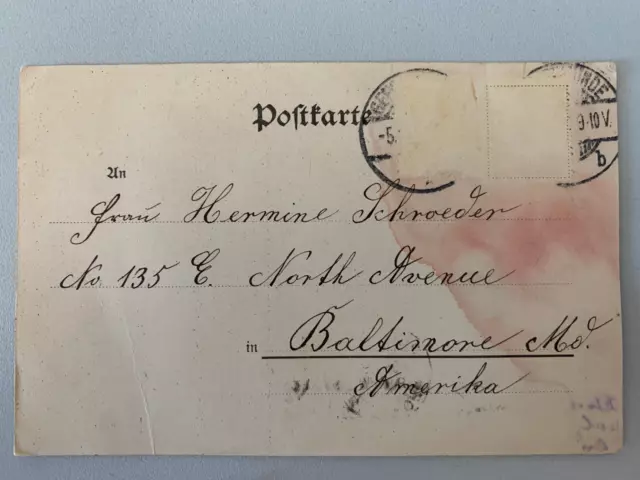 Postkarte
-5.
9-10 V.
b
An
Frau Hermine Schroeder
No 135 E. North Avenue
in Baltimore Md.
Amerika